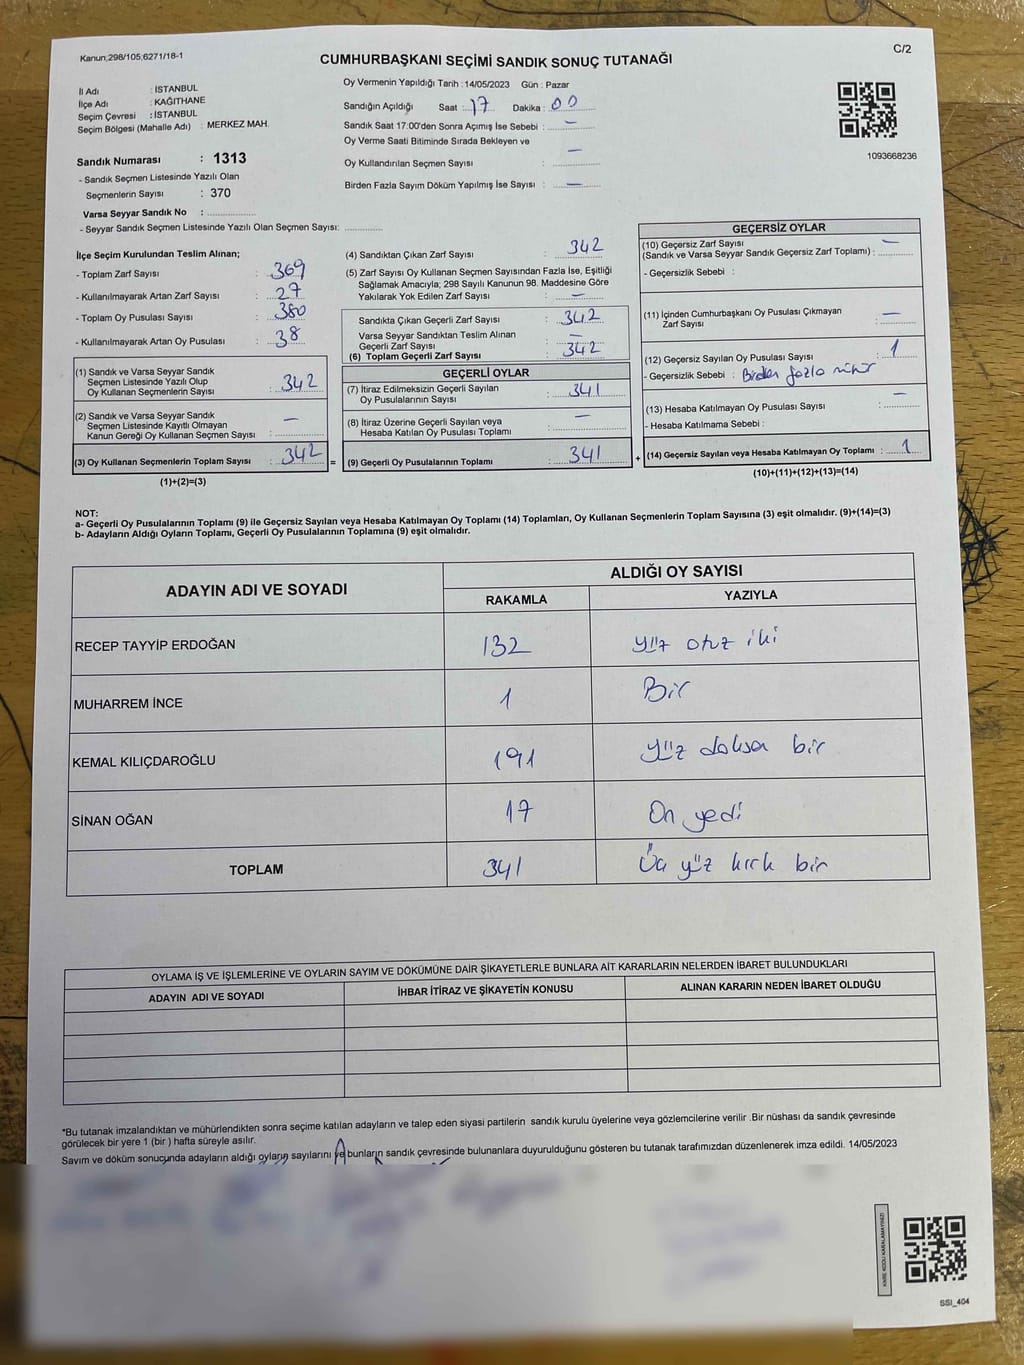 Kanun;298/105;6271/18-1
C/2
CUMHURBAŞKANI SEÇİMİ SANDIK SONUÇ TUTANAĞI
İl Adı : İSTANBUL
İlçe Adı : KAĞITHANE
Seçim Çevresi : İSTANBUL
Seçim Bölgesi (Mahalle Adı) : MERKEZ MAH.
Sandık Numarası : 1313
- Sandık Seçmen Listesinde Yazılı Olan
Seçmenlerin Sayısı : 370
Varsa Seyyar Sandık No :
- Seyyar Sandık Seçmen Listesinde Yazılı Olan Seçmen Sayısı:
Oy Vermenin Yapıldığı Tarih : 14/05/2023 Gün : Pazar
Sandığın Açıldığı Saat : 17 Dakika : 00
Sandık Saat 17:00'den Sonra Açımış İse Sebebi : —
Oy Verme Saati Bitiminde Sırada Bekleyen ve
Oy Kullandırılan Seçmen Sayısı : —
Birden Fazla Sayım Döküm Yapılmış İse Sayısı : —
1093668236
İlçe Seçim Kurulundan Teslim Alınan;
- Toplam Zarf Sayısı : 369
- Kullanılmayarak Artan Zarf Sayısı : 27
- Toplam Oy Pusulası Sayısı : 380
- Kullanılmayarak Artan Oy Pusulası : 38
(1) Sandık ve Varsa Seyyar Sandık
Seçmen Listesinde Yazılı Olup
Oy Kullanan Seçmenlerin Sayısı : 342
(2) Sandık ve Varsa Seyyar Sandık
Seçmen Listesinde Kayıtlı Olmayan
Kanun Gereği Oy Kullanan Seçmen Sayısı : —
(3) Oy Kullanan Seçmenlerin Toplam Sayısı : 342 =
(1)+(2)=(3)
(4) Sandıktan Çıkan Zarf Sayısı : 342
(5) Zarf Sayısı Oy Kullanan Seçmen Sayısından Fazla İse, Eşitliği
Sağlamak Amacıyla; 298 Sayılı Kanunun 98. Maddesine Göre
Yakılarak Yok Edilen Zarf Sayısı : —
Sandıkta Çıkan Geçerli Zarf Sayısı : 342
Varsa Seyyar Sandıktan Teslim Alınan
Geçerli Zarf Sayısı : —
(6) Toplam Geçerli Zarf Sayısı : 342
GEÇERLİ OYLAR
(7) İtiraz Edilmeksizin Geçerli Sayılan
Oy Pusulalarının Sayısı : 341
(8) İtiraz Üzerine Geçerli Sayılan veya
Hesaba Katılan Oy Pusulası Toplamı : —
(9) Geçerli Oy Pusulalarının Toplamı : 341 +
GEÇERSİZ OYLAR
(10) Geçersiz Zarf Sayısı —
(Sandık ve Varsa Seyyar Sandık Geçersiz Zarf Toplamı) :
- Geçersizlik Sebebi :
(11) İçinden Cumhurbaşkanı Oy Pusulası Çıkmayan
Zarf Sayısı : —
(12) Geçersiz Sayılan Oy Pusulası Sayısı : 1
- Geçersizlik Sebebi : Birden fazla mühür
(13) Hesaba Katılmayan Oy Pusulası Sayısı : —
- Hesaba Katılmama Sebebi :
(14) Geçersiz Sayılan veya Hesaba Katılmayan Oy Toplamı : 1
(10)+(11)+(12)+(13)=(14)
NOT:
a- Geçerli Oy Pusulalarının Toplamı (9) ile Geçersiz Sayılan veya Hesaba Katılmayan Oy Toplamı (14) Toplamları, Oy Kullanan Seçmenlerin Toplam Sayısına (3) eşit olmalıdır. (9)+(14)=(3)
b- Adayların Aldığı Oyların Toplamı, Geçerli Oy Pusulalarının Toplamına (9) eşit olmalıdır.
ADAYIN ADI VE SOYADI
ALDIĞI OY SAYISI
RAKAMLA YAZIYLA
RECEP TAYYİP ERDOĞAN 132 Yüz otuz iki
MUHARREM İNCE 1 Bir
KEMAL KILIÇDAROĞLU 191 Yüz doksan bir
SİNAN OĞAN 17 On yedi
TOPLAM 341 Üç yüz kırk bir
OYLAMA İŞ VE İŞLEMLERİNE VE OYLARIN SAYIM VE DÖKÜMÜNE DAİR ŞİKAYETLERLE BUNLARA AİT KARARLARIN NELERDEN İBARET BULUNDUKLARI
ADAYIN ADI VE SOYADI İHBAR İTİRAZ VE ŞİKAYETİN KONUSU ALINAN KARARIN NEDEN İBARET OLDUĞU
*Bu tutanak imzalandıktan ve mühürlendikten sonra seçime katılan adayların ve talep eden siyasi partilerin sandık kurulu üyelerine veya gözlemcilerine verilir .Bir nüshası da sandık çevresinde
görülecek bir yere 1 (bir ) hafta süreyle asılır.
Sayım ve döküm sonucunda adayların aldığı oyların sayılarını ve bunların sandık çevresinde bulunanlara duyurulduğunu gösteren bu tutanak tarafımızdan düzenlenerek imza edildi. 14/05/2023
SSI_404